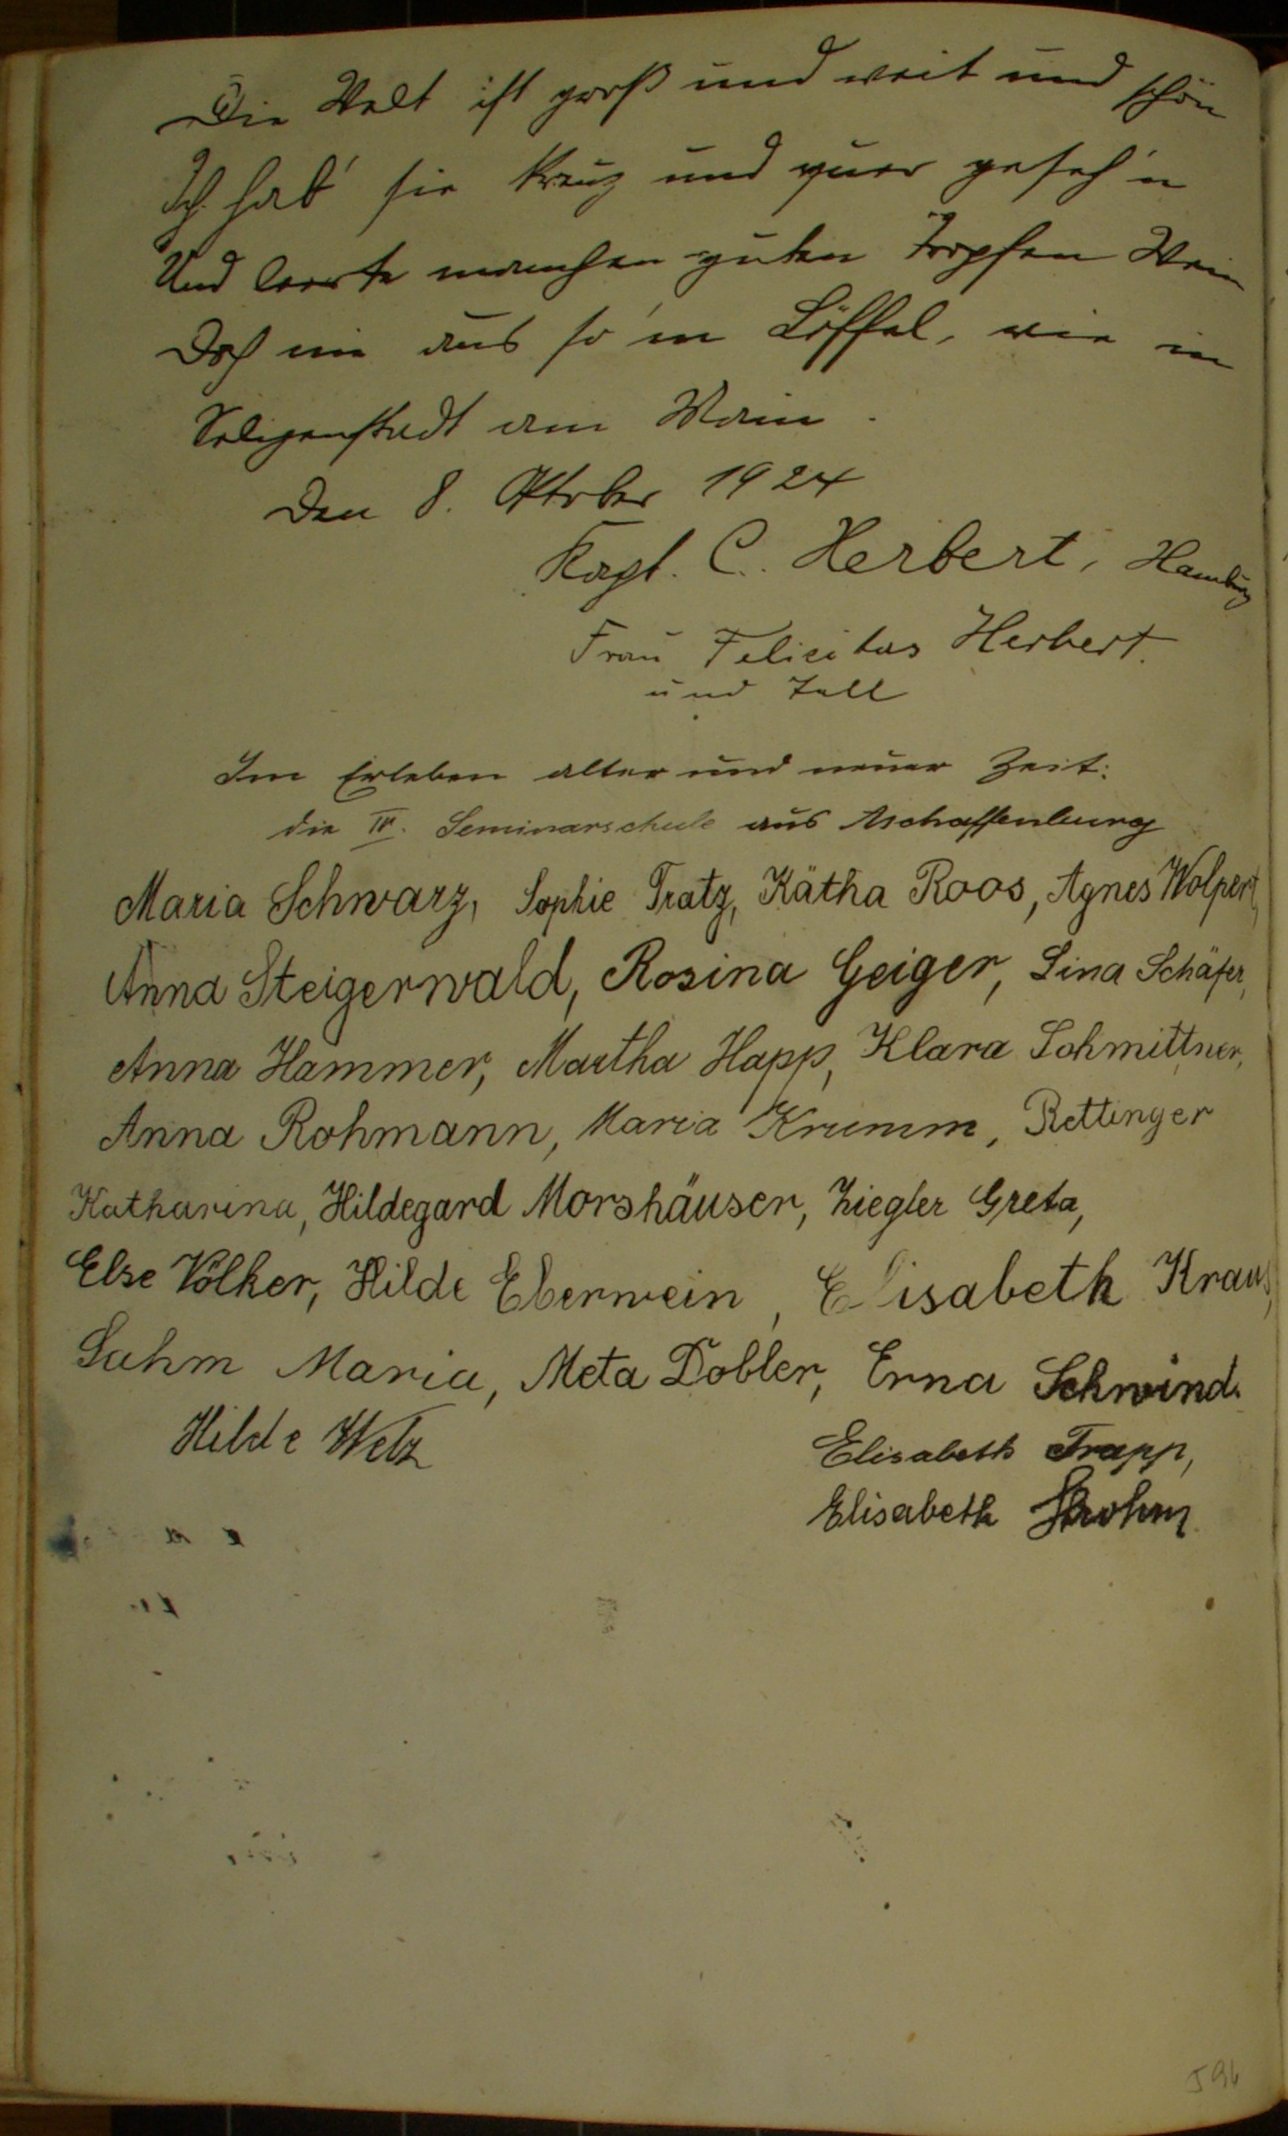 Die Welt ist groß und weit und schön
Ich hab' sie kreuz und quer geseh'n
Und leerte manchen guten Tropfen Wein
Doch nie aus so'm Löffel, wie in
Seligenstadt am Main.
Den 8. Oktober 1924
Kapt. C. Herbert, Hamburg
Frau Felicitas Herbert.
und Tell
Im Erleben alter und neuer Zeit:
die IV. Seminarschule aus Aschaffenburg
Maria Schwarz, Sophie Tratz, Kätha Roos, Agnes Wolpert,
Anna Steigerwald, Rosina Geiger, Lina Schäfer,
Anna Hammer, Martha Happ, Klara Schmittner,
Anna Rohmann, Maria Krumm, Rettinger
Katharina, Hildegard Morshäuser, Ziegler Greta,
Else Völker, Hilde Eberwein, Elisabeth Kraus,
Sahm Maria, Meta Dobler, Erna Schwind.
Hilde Welz
Elisabeth Trapp,
Elisabeth Strohm
596